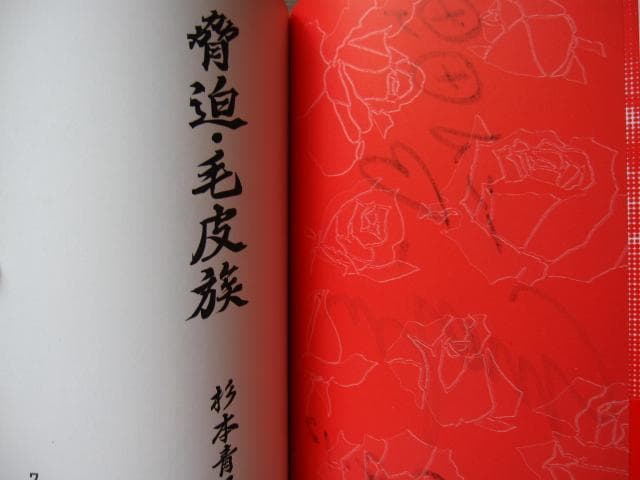 脅迫・毛皮族
杉本青
7